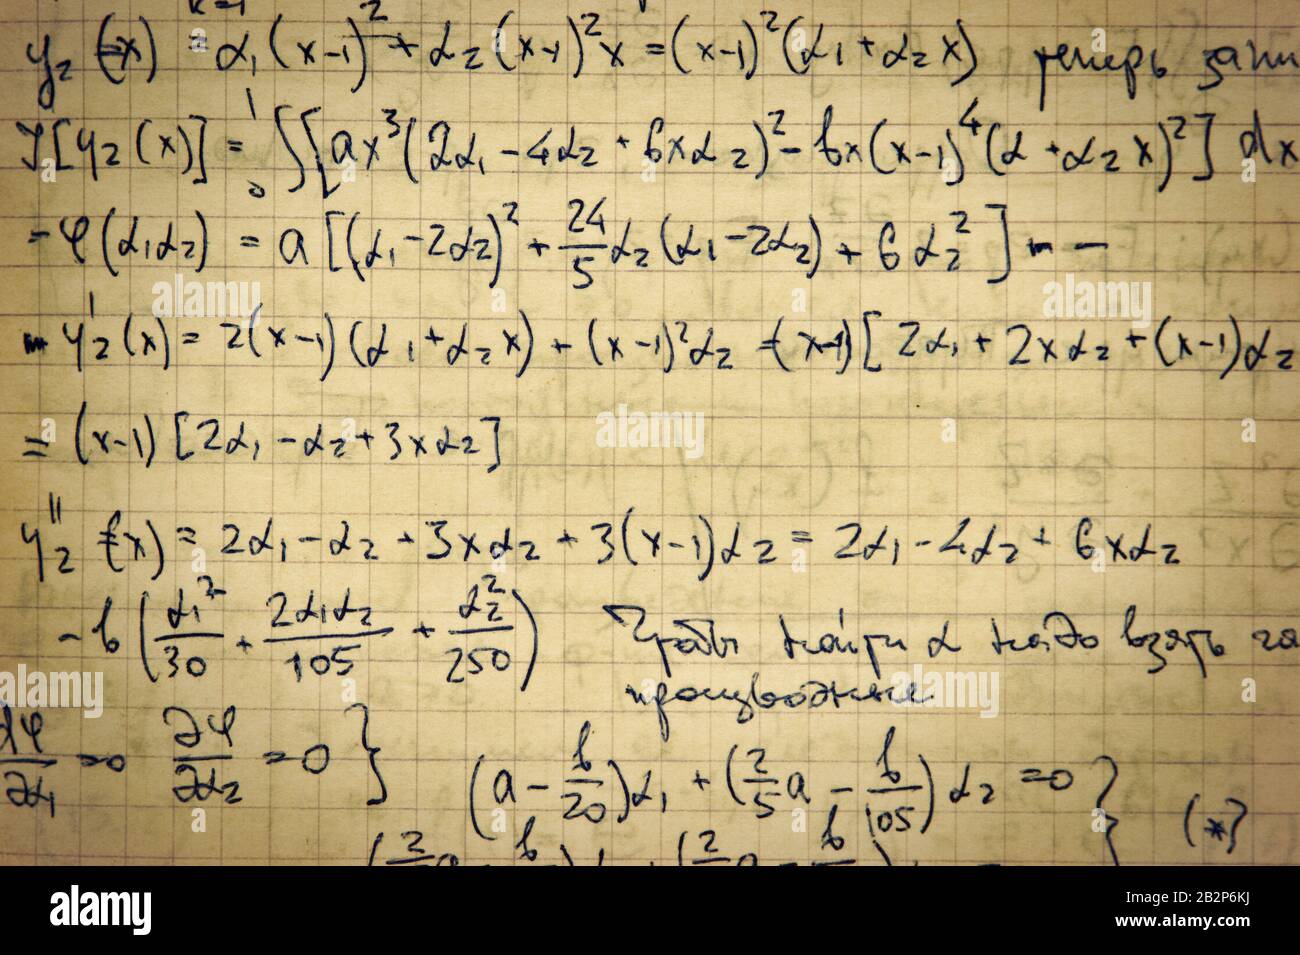 k=1
y₂(x) = α₁(x-1)² + α₂(x-1)²x = (x-1)²(α₁+α₂x) теперь запи
J[y₂(x)] = ∫₀¹[ax³(2α₁-4α₂+6xα₂)² - bx(x-1)⁴(α+α₂x)²]dx
= φ(α₁α₂) = a[(α₁-2α₂)² + 24/5 α₂(α₁-2α₂) + 6α₂²] - -
y₂'(x) = 2(x-1)(α₁+α₂x) + (x-1)²α₂ = (x-1)[2α₁+2xα₂+(x-1)α₂
= (x-1)[2α₁-α₂+3xα₂]
y₂''(x) = 2α₁-α₂+3xα₂+3(x-1)α₂ = 2α₁-4α₂+6xα₂
- b(α₁²/30 + 2α₁α₂/105 + α₂²/250) Чтобы найти α надо взять ча
производные
∂φ/∂α₁ = 0 ∂φ/∂α₂ = 0 } (a - b/20)α₁ + (2/5 a - b/105)α₂ = 0 } (*)
alamy
Image ID: 2B2P6KJ
www.alamy.com